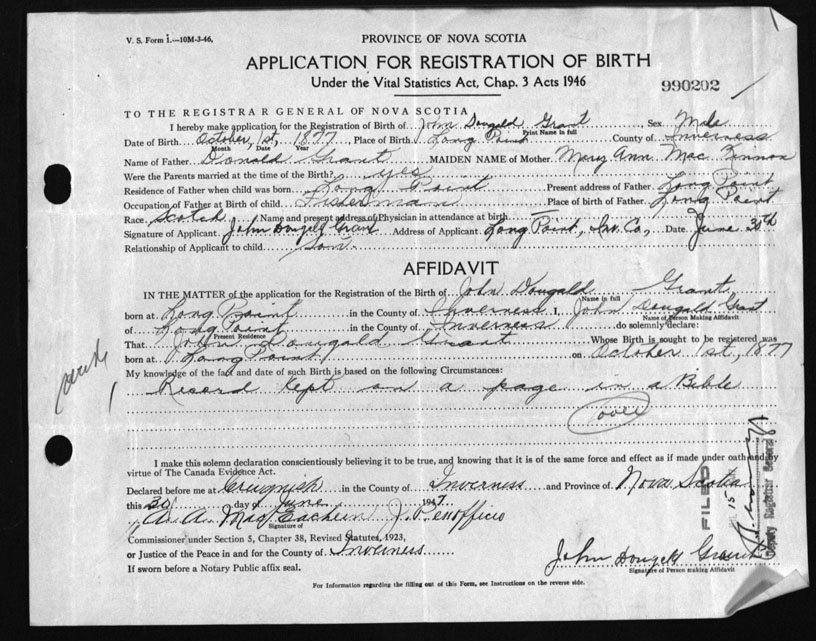 V. S. Form 1.—10M-3-46.
PROVINCE OF NOVA SCOTIA
APPLICATION FOR REGISTRATION OF BIRTH
Under the Vital Statistics Act, Chap. 3 Acts 1946
990202
TO THE REGISTRAR GENERAL OF NOVA SCOTIA
I hereby make application for the Registration of Birth of John Dougald Grant, Sex Male
Print Name in full
Date of Birth October, 1st, 1877, Place of Birth Long Point County of Inverness
Month Day Year
Name of Father Donald Grant MAIDEN NAME of Mother Mary Ann Mac Kinnon
Were the Parents married at the time of the Birth? yes
Residence of Father when child was born Long Point Present address of Father Long Point
Occupation of Father at Birth of child Fisherman Place of birth of Father Long Point
Race Scotch Name and present address of Physician in attendance at birth
Signature of Applicant John Dougald Grant Address of Applicant Long Point, Inv. Co, Date June 30th
Relationship of Applicant to child Son
AFFIDAVIT
IN THE MATTER of the application for the Registration of Birth of John Dougald Grant
Name in full
born at Long Point in the County of Inverness I, John Dougald Grant
Name of Person Making Affidavit
of Long Point in the County of Inverness do solemnly declare:
Present Residence
That John Dougald Grant Whose Birth is sought to be registered was
born at Long Point on October 1st, 1877
My knowledge of the fact and date of such Birth is based on the following Circumstances:
Record kept on a page in a Bible
over
I make this solemn declaration conscientiously believing it to be true, and knowing that it is of the same force and effect as if made under oath and by
virtue of The Canada Evidence Act.
Declared before me at Creignish in the County of Inverness and Province of Nova Scotia
this 30 day of June 1947
A. A. MacEachern
Signature of
Commissioner under Section 5, Chapter 38, Revised Statutes, 1923,
or Justice of the Peace in and for the County of Inverness
If sworn before a Notary Public affix seal.
John Dougald Grant
Signature of Person Making Affidavit
For Information regarding the filling out of this Form, see Instructions on the reverse side.
FILED
15
Deputy Registrar General